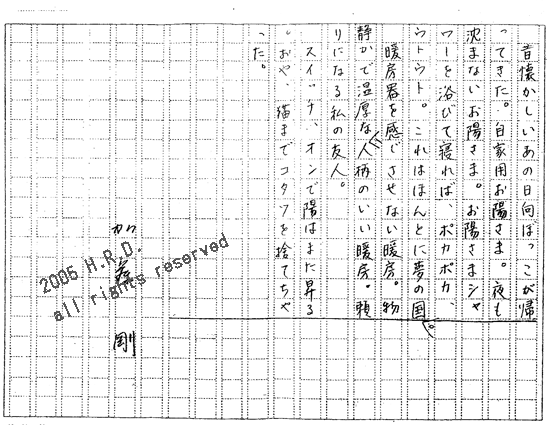 昔懐かしいあの日向ぼっこが帰
ってきた。自家用お陽さま。夜も
沈まないお陽さま。お陽さまシャ
ワーを浴びて寝れば、ポカポカ、
ウトウト。これはほんとに夢の国。
暖房器を感じさせない暖房。物
静かで温厚な人柄のいい暖房。頼
りになる私の友人。
スイッチ、オンで陽はまた昇る
。おや、猫までコタツを捨てちゃ
った。
加藤 剛
2006 H.R.D.
all rights reserved